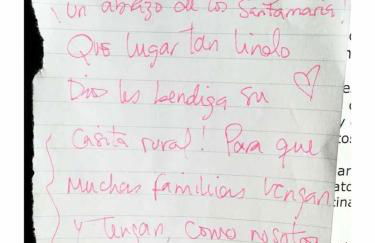 Un abrazo de los Santamaría!
Que lugar tan lindo
Dios les bendiga su
casita rural! Para que
muchas familias vengan
y tengan, como nosotros